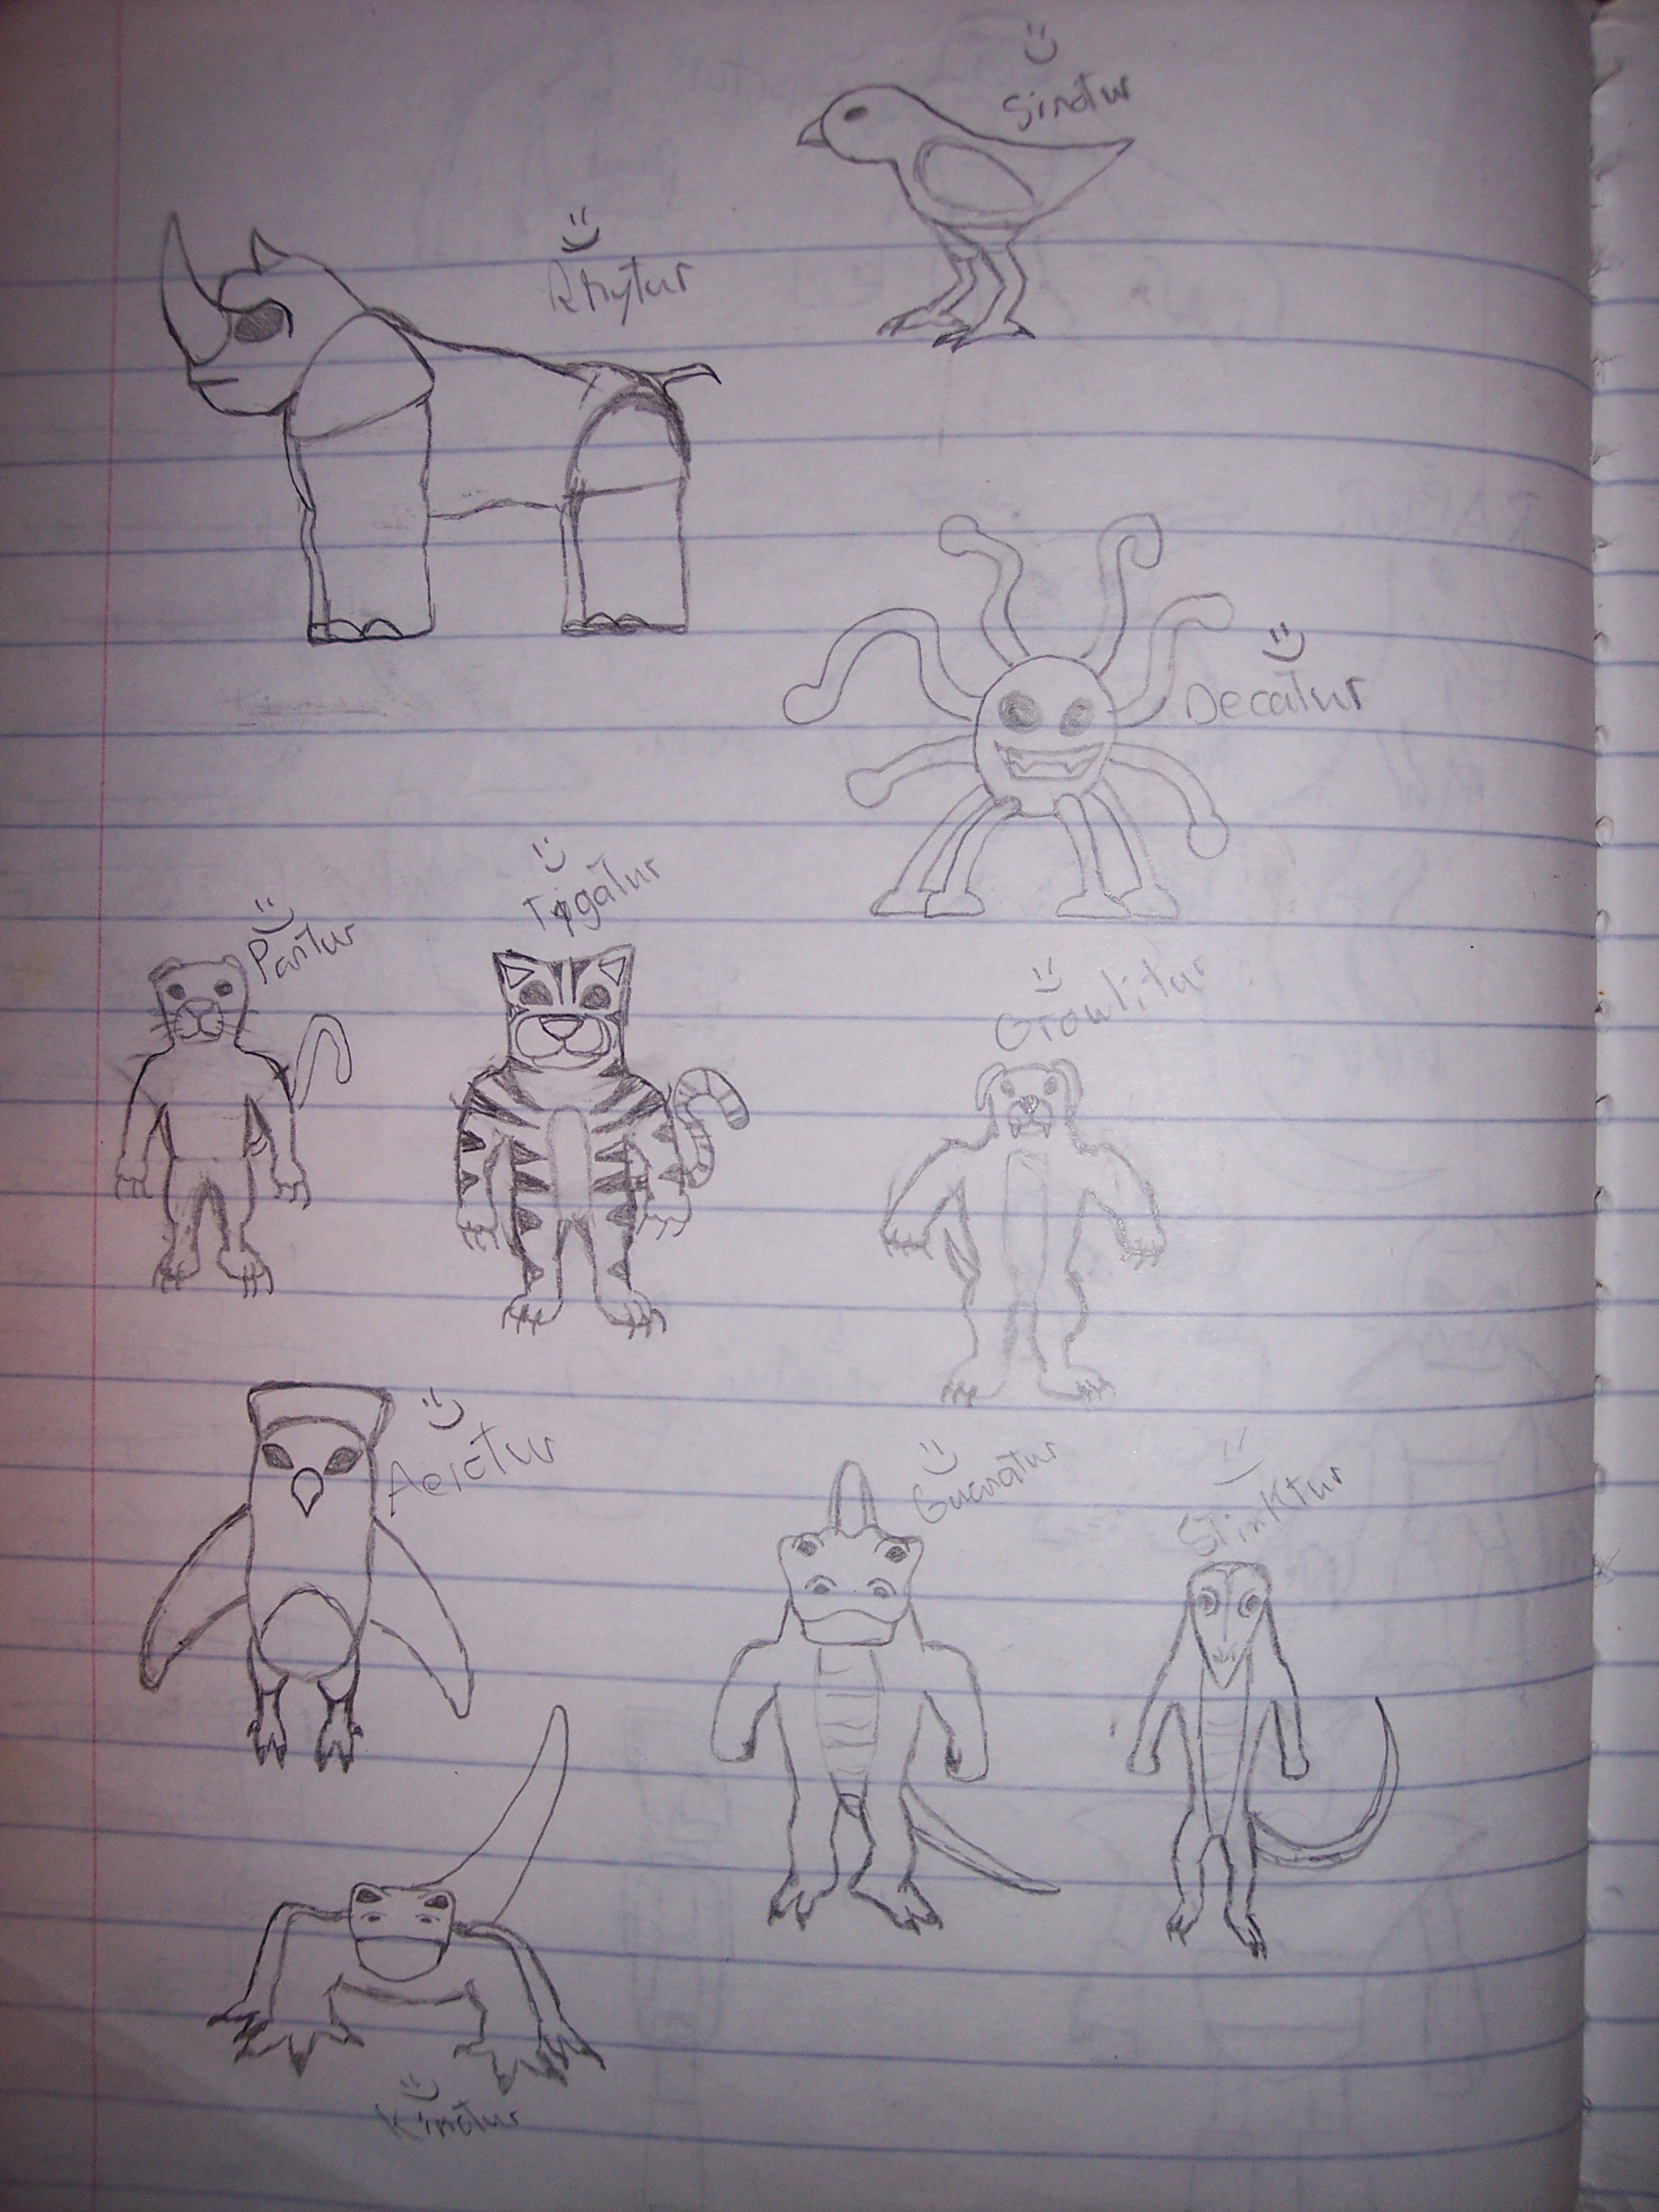 Sinatur
Rhytur
Decatur
Pantur
Tygatur
Growlitur
Aeiotur
Guanatur
Stinktur
Kimotur